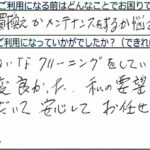 ご利用になる前はどんなことでお困りで
置換えかメンテナンスをするか悩
ご利用になっていかがでしたか？（できれ
い「クリーニングをしてい
変良かった、私の要望
だいて安心してお任せ